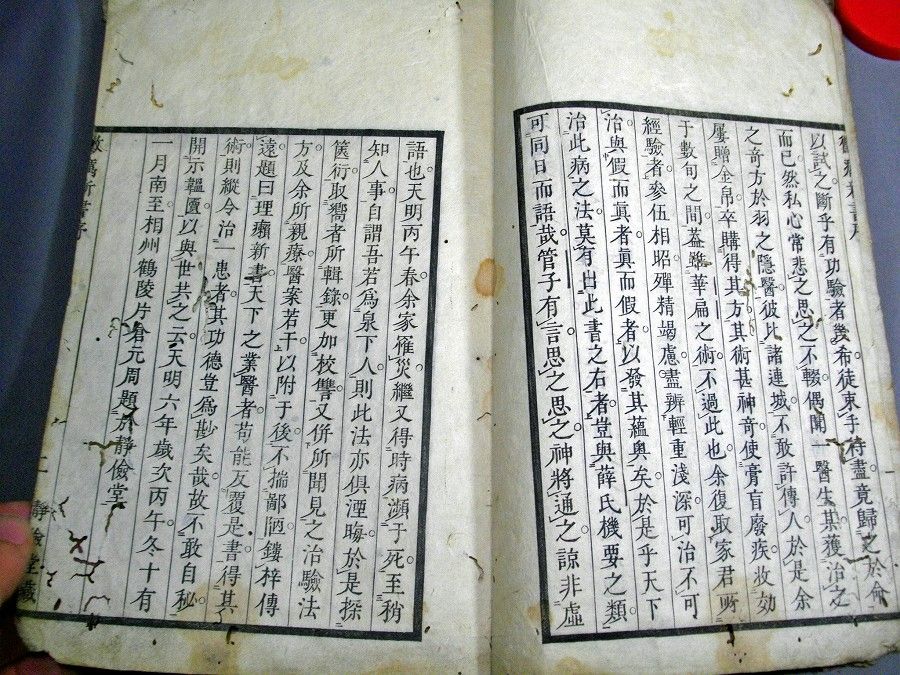 以試之斷乎有功驗者幾布徒束手待盡竟歸之於俞
而已然私心常悲之思之不輟偶聞一醫生某獲治之
之奇方於羽之隱醫彼比諸連城不敢許傳人於是余
屢贈金帛卒購得其方其術甚神奇使膏肓廢疾收効
于數句之間葢雖華扁之術不過此也余復取家君所
經驗者參伍相昭殫精竭慮盡辨輕重淺深可治不可
治與假而眞者眞而假者以發其蘊奥矣於是乎天下
治此病之法莫有出此書之右者豈與薛氏機要之類
可同日而語哉管子有言思之思之神將通之諒非虛
語也天明丙午春余家罹災繼又得時病瀕于死至稍
知人事自謂吾若爲泉下人則此法亦俱湮晦於是探
篋衍取嚮者所輯錄更加校讐又併所聞見之治驗法
方及余所親療醫案若干以附于後不揣鄙陋鏤梓傳
遠題曰理癘新書天下之業醫者苟能反覆是書得其
術則縱令治一患者其功德豈爲尠矣哉故不敢自秘
開示韞匱以與世共之云天明六年歲次丙午冬十有
一月南至相州鶴陵片倉元周題於靜儉堂
靜儉堂藏